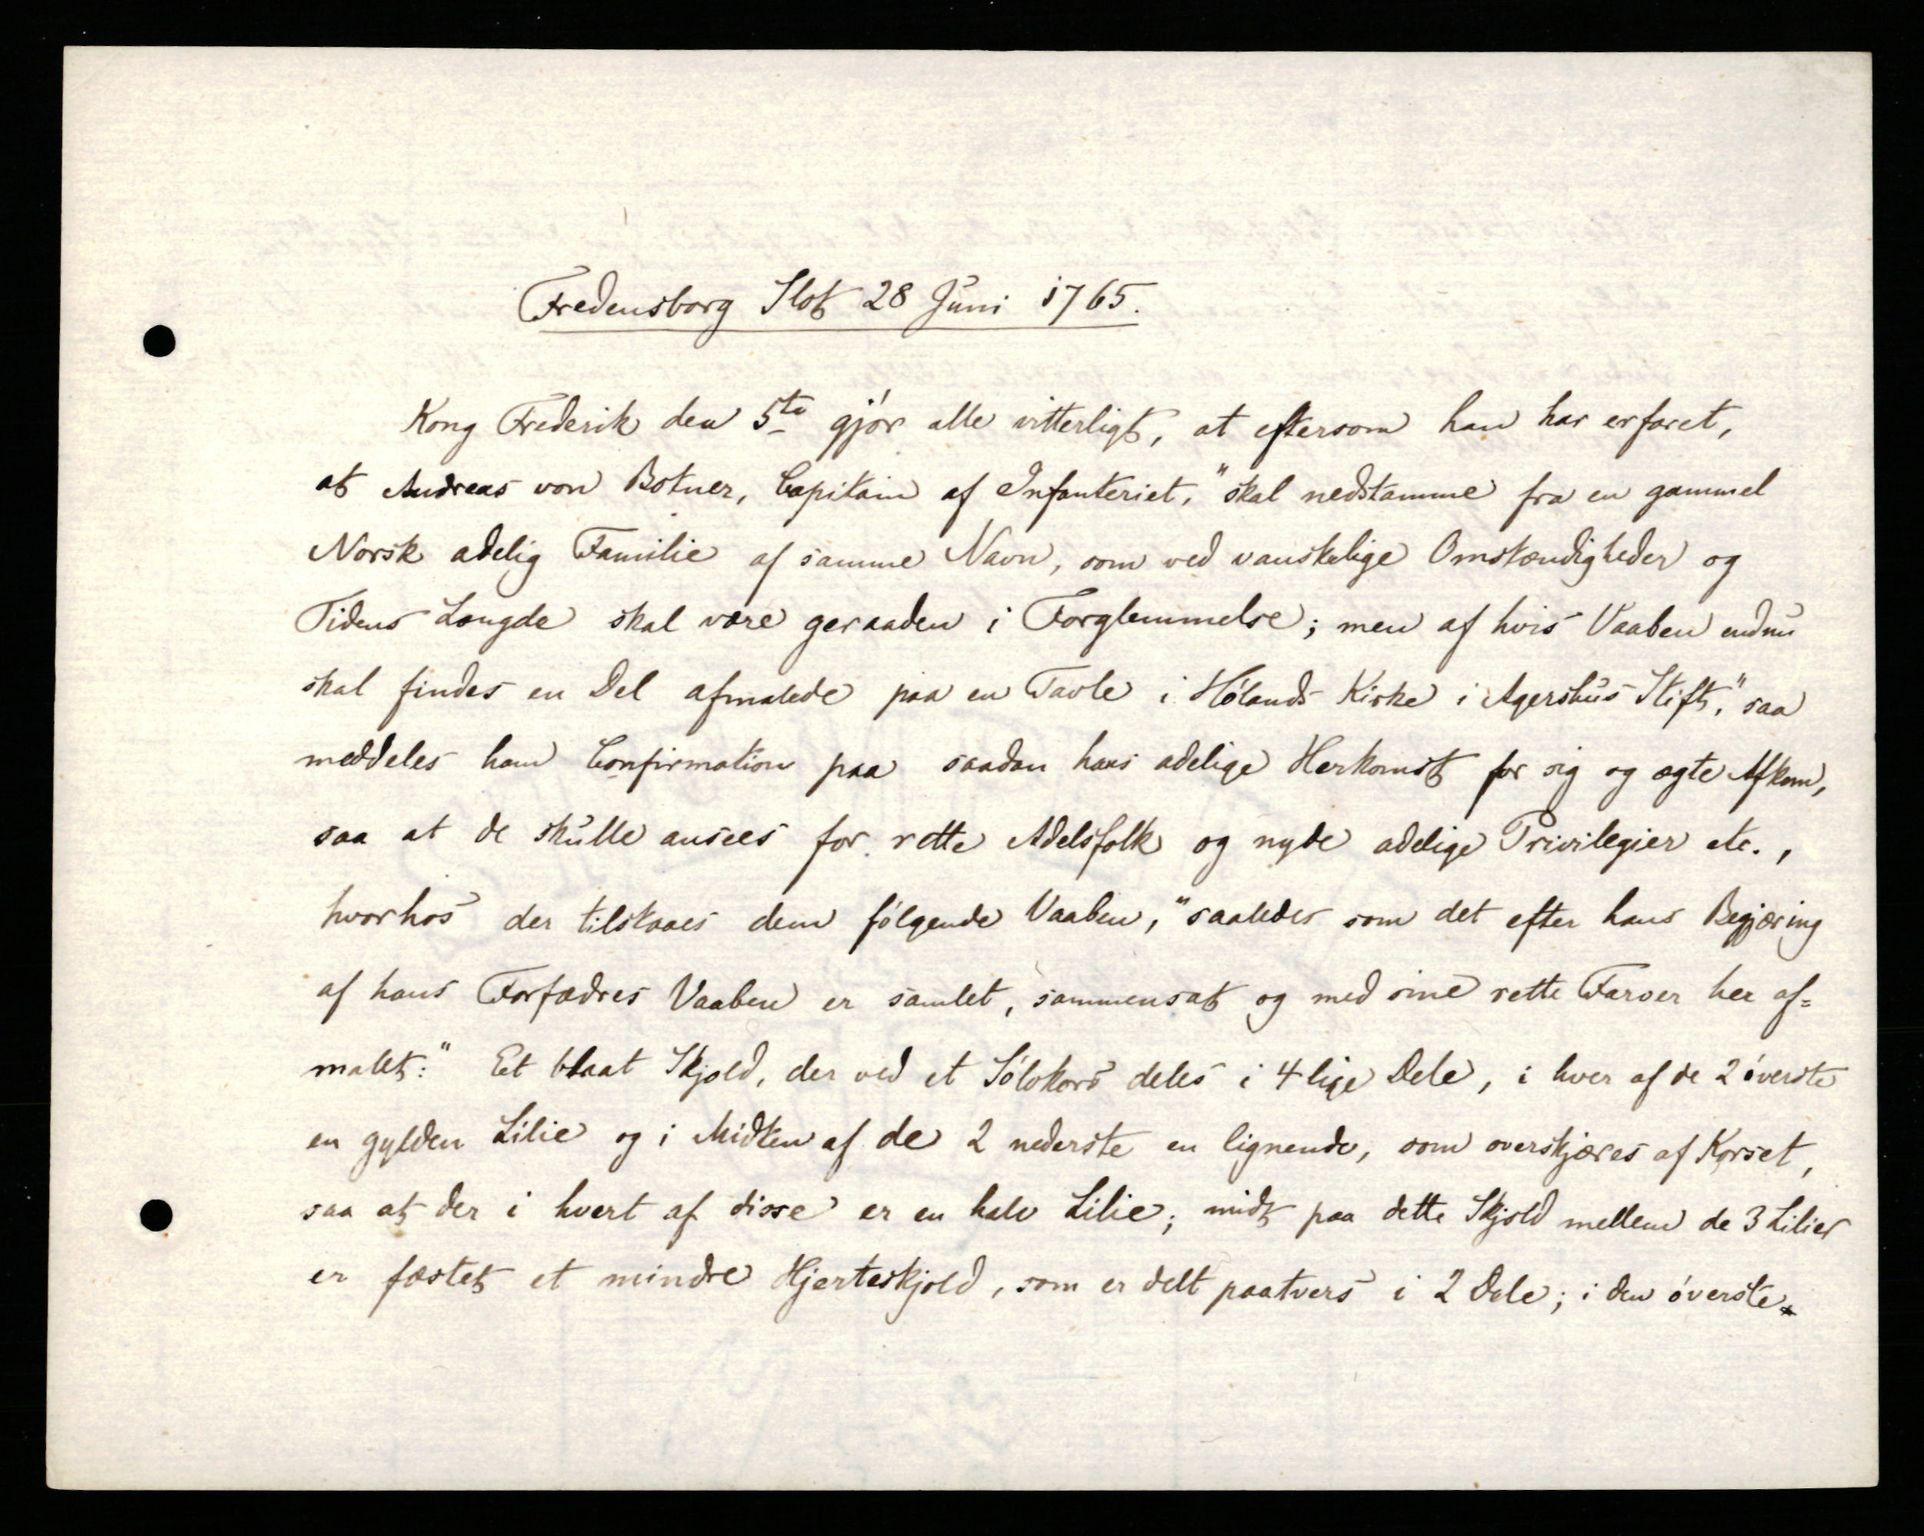 Fredensborg Slot 28 Juni 1765.
Kong Frederik den 5te gjör alle vitterligt, at eftersom han har erfaret,
at Andreas von Botner, Capitain af Infanteriet, "skal nedstamme fra en gammel
Norsk adelig Familie af samme Navn, som ved vanskelige Omstændigheder og
Tidens Længde skal være geraaden i Forglemmelse; men af hvis Vaaben endnu
skal findes en Del afmalede paa en Tavle i Hölands Kirke i Agershus Stift," saa
meddeles ham Confirmation paa saadan hans adelige Herkomst for sig og ægte Afkom,
saa at de skulle ansees for rette Adelsfolk og nyde adelige Privilegier etc.,
hvorhos der tilstaaes dem fölgende Vaaben, "saaledes som det efter hans Begjæring
af hans Forfædres Vaaben er samlet, sammensat og med sine rette Farver her af=
malet:" Et blaat Skjold, der ved et Sölvkors deles i 4 lige Dele, i hver af de 2 överste
en gylden Lilie og i Midten af de 2 nederste en lignende, som overskjæres af Korset,
saa at der i hvert af disse er en halv Lilie; midt paa dette Skjold mellem de 3 Lilier
er fæstet et mindre Hjerteskjold, som er delt paatvers i 2 Dele; i den överste